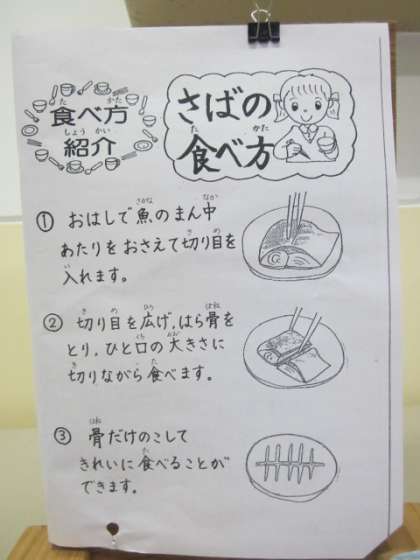 食べ方
紹介
さばの
食べ方
① おはしで魚のまん中
あたりをおさえて切り目を
入れます。
② 切り目を広げ,はら骨を
とり,ひと口の大きさに
切りながら食べます。
③ 骨だけのこして
きれいに食べることが
できます。